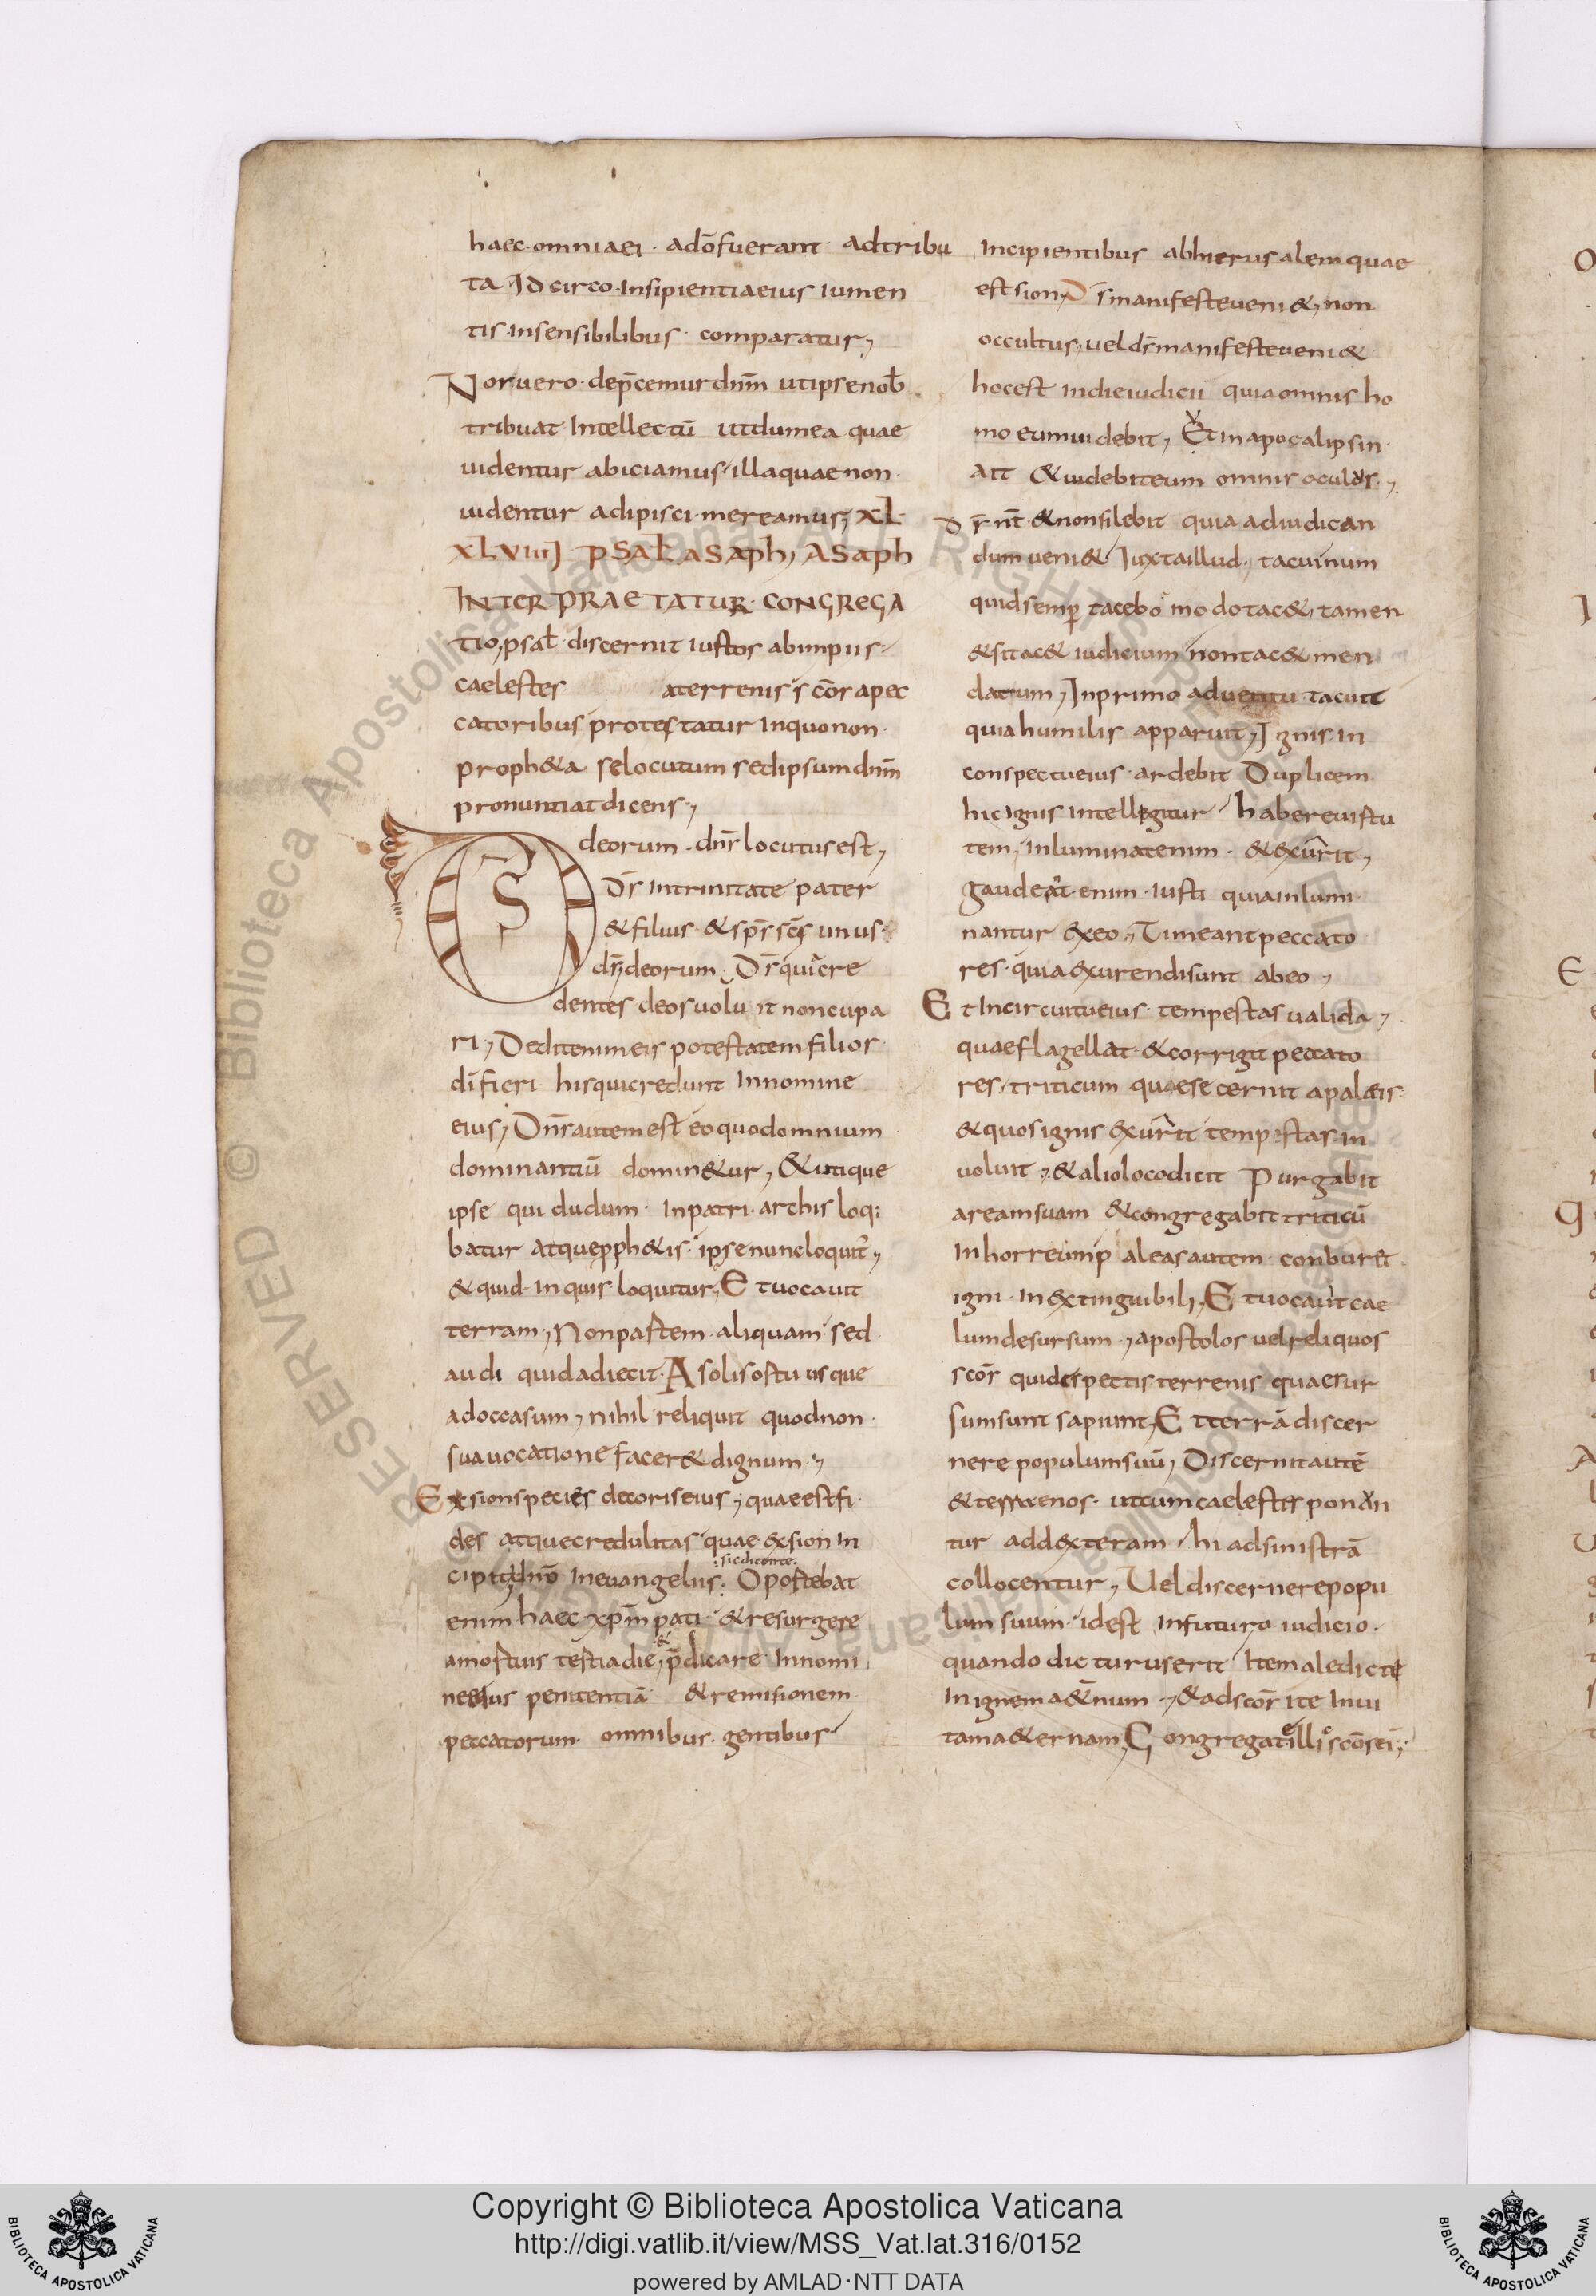 haec·omniaei· adōfuerant· adtribu
ta Idcirco·Insipientiaeius iumen
tis·insensibilibus· comparatur,
Nosuero·dep̄cemurdnm̄ utipsenob̄
tribuat Intellectū utdumea quae
uidentur abiciamus illaquaenon·
uidentur adipisci·mereamus; XL
XLVIIII PSAL ASAPH, ASAPH
INTERPRAETATUR· CONGREGA
tio,psal̄·discernit iustos abimpiis·
caelestes aterrenis s̄cōr apec
catoribus protestatur Inquonon·
proph&a selocutum sedipsumdnm̄
pronuntiatdicens·,
DS deorum·dn̄s locutusest,
Dr̄ Intrinitate pater
&filius·&sp̄s sc̄s unus·
dr̄,deorum· Dr̄quicre
dentes deosuolu it noncupa
ri, Deditenimeis potestatemfilios·
dī fieri hisquicredunt Innomine
eius, Dn̄sautemest eoquodomnium
dominantiū domin&ur, &utique
ipse qui dudum· Inpatri·archis loq;
batur atquepph&is· ipsenuncloquit̄,
&quid·inquis loquitur, Etuocauit
terram, Nonpastem·aliquam sed
audi quidadiecit·Asolisostu usque
adoccasum, nihil reliquit quodnon·
suauocatione facer& dignum·,
Exsionspecies decoriseius, quaeestfi
des atquecredulitas quae·exsion In
sicdicente
Ineuangeliis· Oportebat
enim haec xpm̄ pati·&resurgere
amostuis testiadie, & p̄dicare· Innomi
neeius penitentiā &remisionem
peccatorum· omnibus·gentibus
Incipientibus abhierusalemquae
estsion,Dsmanifesteueni&, non
occultus, ueldr̄manifesteueni&
hocest indieiudicii quiaomnis ho
moeumuidebit, Etinapocalipsin·
ait &uidebiteum omnis oculus·,
Dr̄ nt̄ &nonsilebit quia adiudican
dumueni& Iuxtaillud, tacuinum
quidsemp̄ tacebo modotac&, tamen
&sitac& iudicium nontac& men
datum, Inprimo aduentu·tacuit
quiahumilis apparuit, Ignis in
conspectueius·ardebit Duplicem
hicignis intellegitur habereuistu
tem, Inluminatenim· &exurit,
gaudeant·enim·iusti quiainlumi
nantur exeo, Timeantpeccato
res·quiaexurendisunt abeo,
EtIncircuitueius·tempestasualida,
quaeflagellat·&corrigit peccato
res·triticum quaesecernit apaleis·
&quosignis exurit tempestas in
uoluit, &aliolocodicit Purgabit
areamsuam &congregabittriticū
Inhorreum paleasautem·conburet
igni·Inextinguibili, Etuocauitcae
lumdesursum, apostolos uelreliquos
scōr quidespectis·terrenis·quaesur
sumsunt sapiunt, Etterrādiscer
nere populumsuū, Discernitautē
&terrenos· utcumcaelestes ponan
tur addexteram hi adsinistrā
collocentur, Ueldiscernerepopu
lum suum·idest Infuturo iudicio·
quando dicturuserit Itemaledicte
Inignema&n̄um, &adscōr ite Inui
tama&ernam, Congregateilliscōseī,
Copyright © Biblioteca Apostolica Vaticana
http://digi.vatlib.it/view/MSS_Vat.lat.316/0152
powered by AMLAD·NTT DATA
BIBLIOTECA APOSTOLICA VATICANA
BIBLIOTECA APOSTOLICA VATICANA